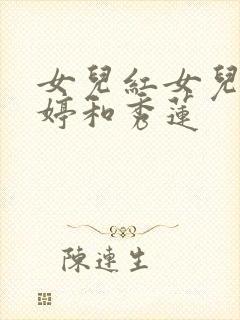 女兒紅女兒
婷和秀蓮
陳連生